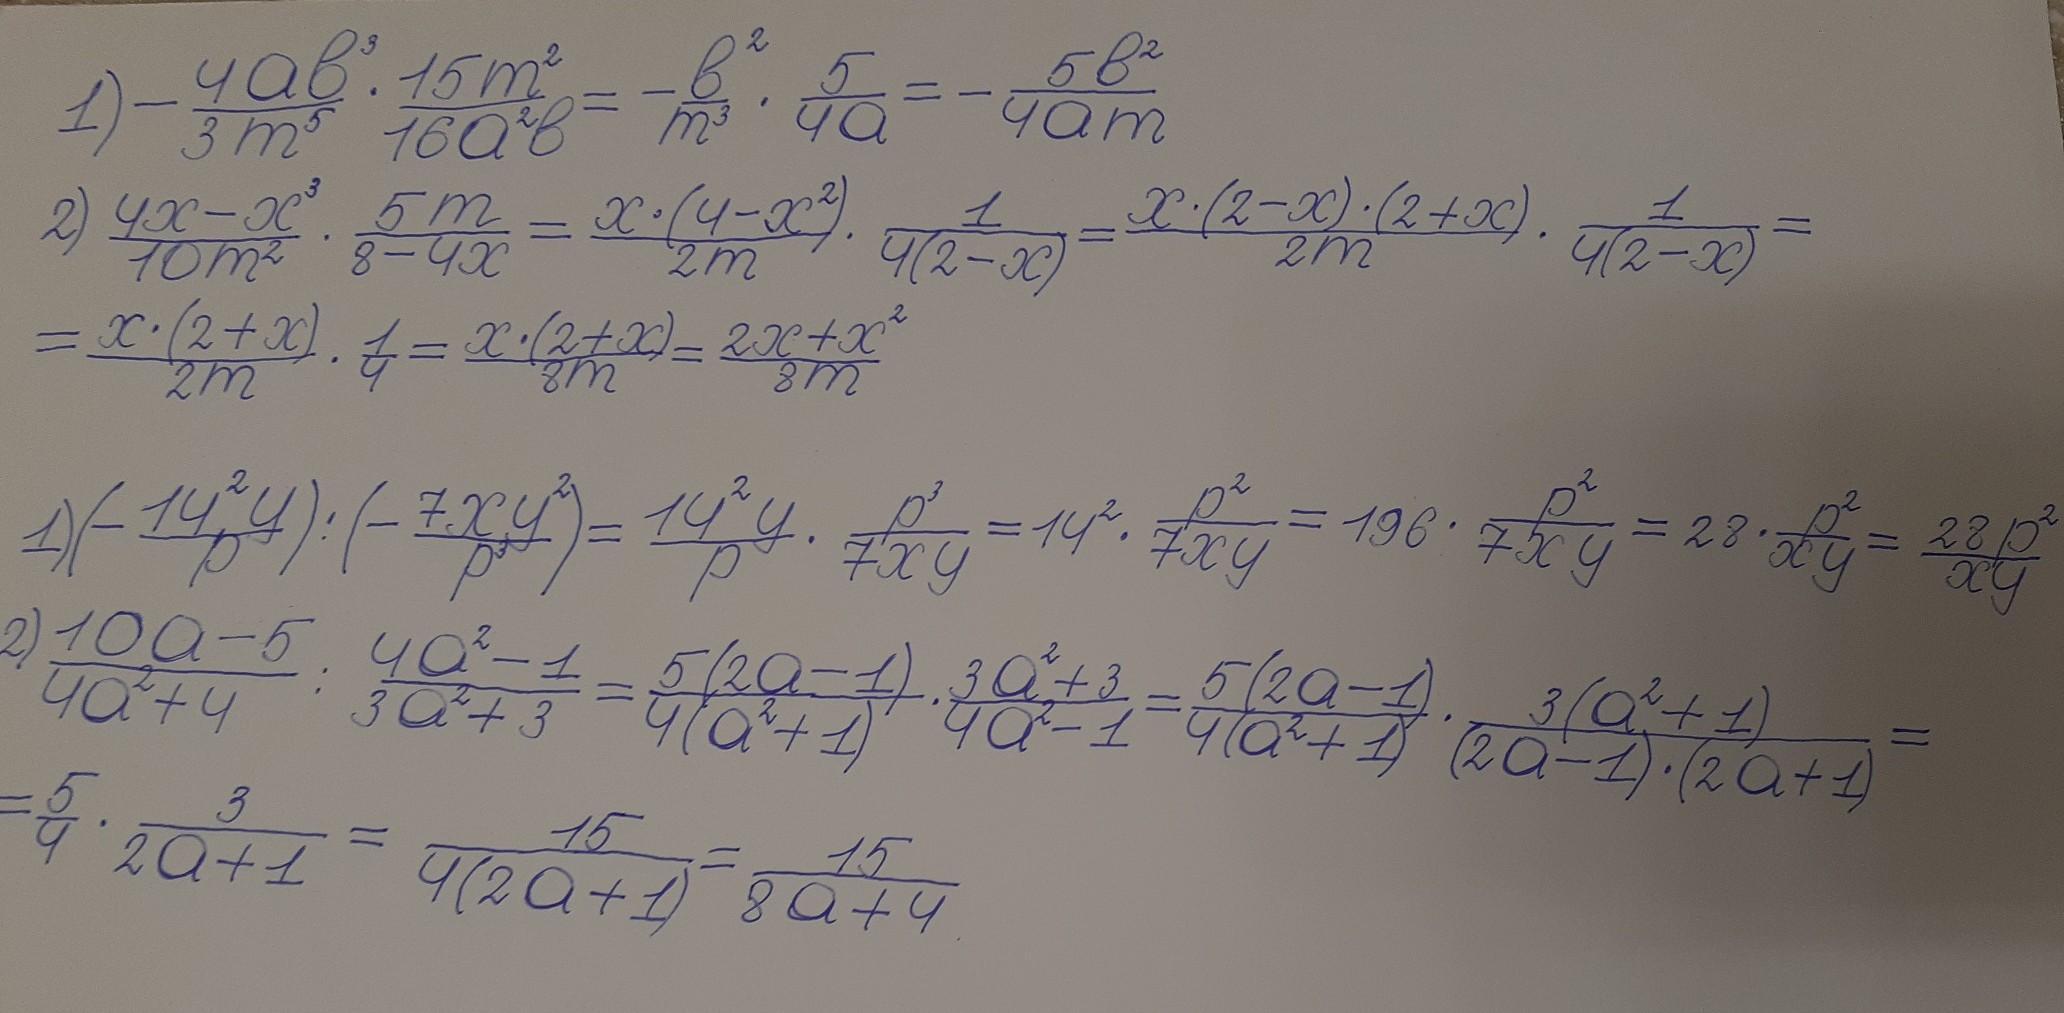 1) -4ав³/3m⁵ · 15m²/16а²в = -в²/m³ · 5/4а = -5в²/4аm
2) 4x-x³/10m² · 5m/8-4x = x·(4-x²)/2m · 1/4(2-x) = x·(2-x)·(2+x)/2m · 1/4(2-x) =
= x·(2+x)/2m · 1/4 = x·(2+x)/8m = 2x+x²/8m
1) (-14²y/p) : (-7xy²/p³) = 14²y/p · p³/7xy = 14² · p²/7xy = 196 · p²/7xy = 28 · p²/xy = 28p²/xy
2) 10а-5/4а²+4 : 4а²-1/3а²+3 = 5(2а-1)/4(а²+1) · 3а²+3/4а²-1 = 5(2а-1)/4(а²+1) · 3(а²+1)/(2а-1)·(2а+1) =
= 5/4 · 3/2а+1 = 15/4(2а+1) = 15/8а+4